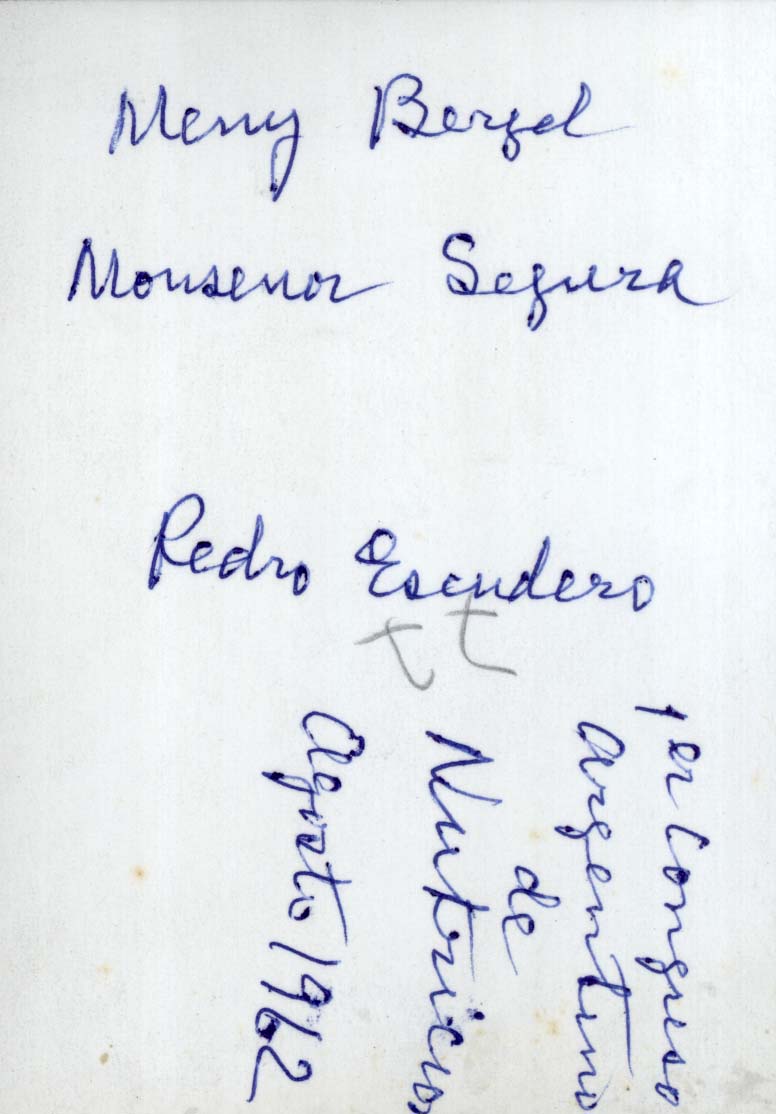 Meny Bergel
Monsenor Segura
Pedro Escudero
1er Congreso
Argentino
de
Nutricion
Agosto 1962